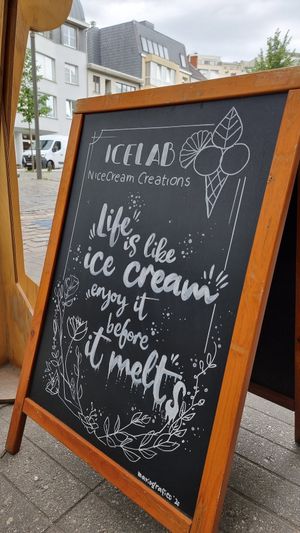 ICELAB
NiceCream Creations
Life
is like
ice cream
enjoy it
before
it melts